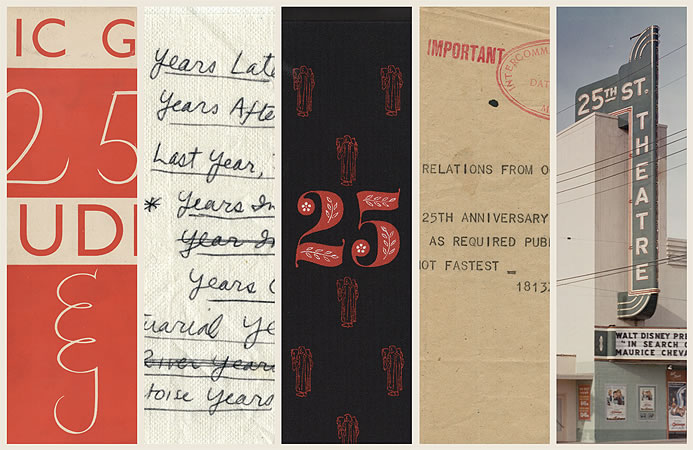 IC G
25
UD
&
Years Late
Years Afte
Last Year,
* Years In
Year In
Years
uarial Ye
River Years
toise Years
25
IMPORTANT
INTERCOMM
DAT
RELATIONS FROM O
25TH ANNIVERSARY
AS REQUIRED PUB
NOT FASTEST
1813
25TH ST.
THEATRE
WALT DISNEY PR
"IN SEARCH O
MAURICE CHEVA